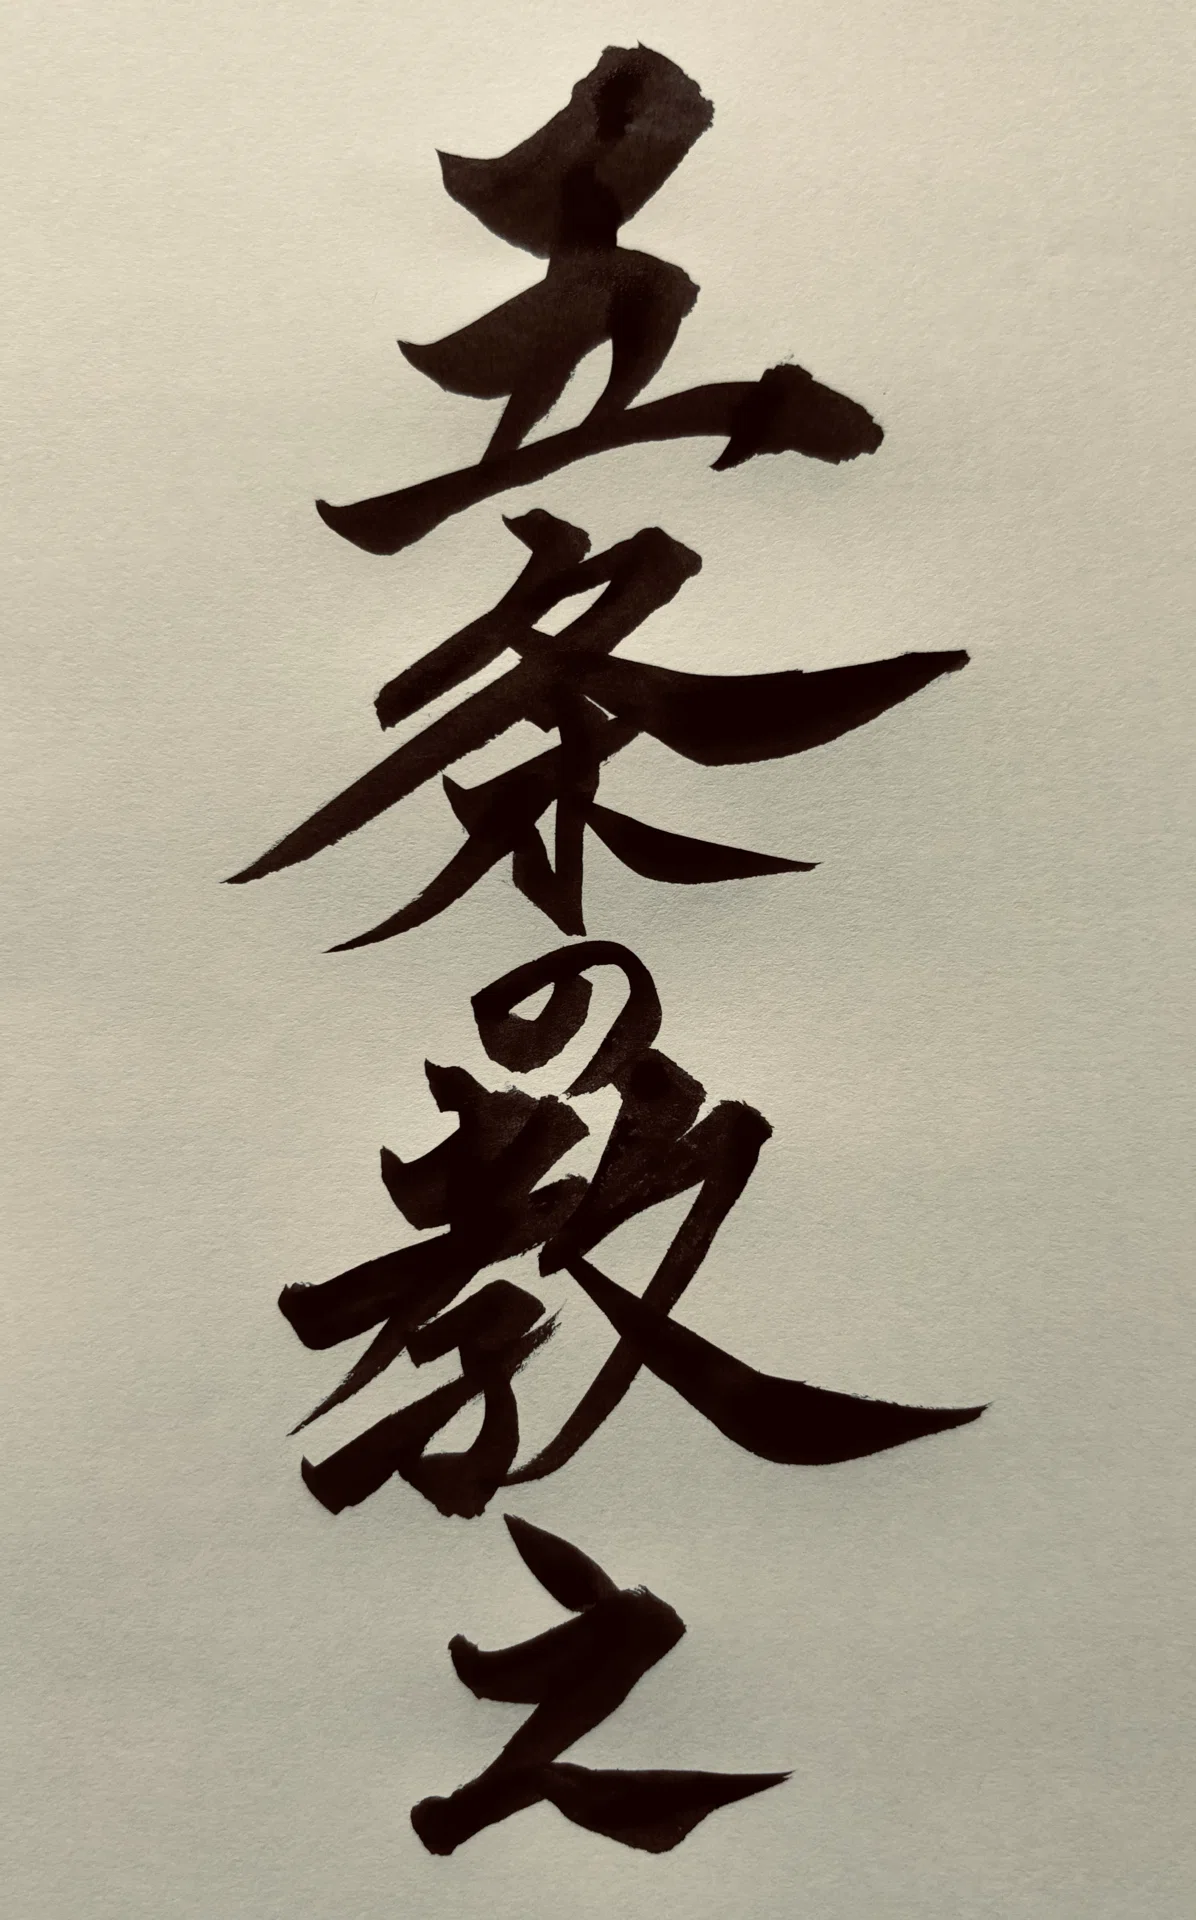 五条の教え